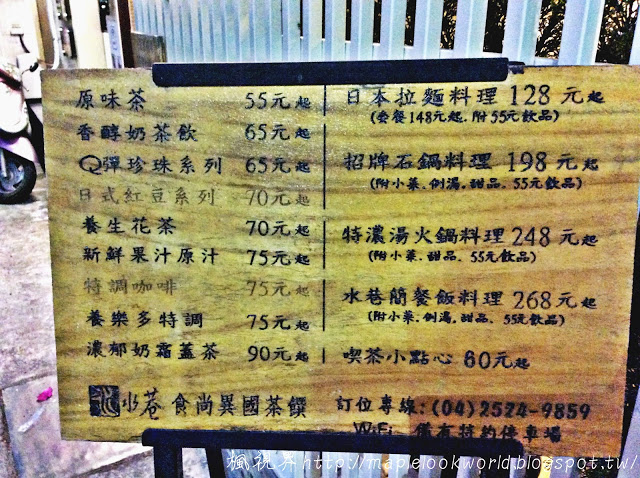 原味茶 55元起
香醇奶茶飲 65元起
Q彈珍珠系列 65元起
日式紅豆系列 70元起
養生花茶 70元起
新鮮果汁原汁 75元起
特調咖啡 75元起
養樂多特調 75元起
濃郁奶霜蓋茶 90元起
水巷 食尚異國茶饌
日本拉麵料理 128元起
(套餐148元起.附55元飲品)
招牌石鍋料理 198元起
(附小菜.例湯,甜品、55元飲品)
特濃湯火鍋料理 248元起
(附小菜.甜品、55元飲品)
水巷簡餐飯料理 268元起
(附小菜.例湯,甜品、55元飲品)
喫茶小點心 60元起
訂位專線:(04)2524-9859
WiFi 備有特約停車場
楓視界http://maplelookworld.blogspot.tw/